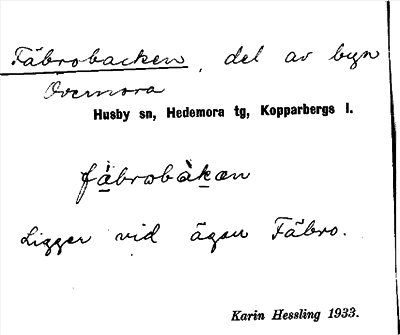 Fäbrobacken, del av byn
Övermora
Husby sn, Hedemora tg, Kopparbergs l.
fä̀brobàkan
Ligger vid ägan Fäbro.
Karin Hessling 1933.